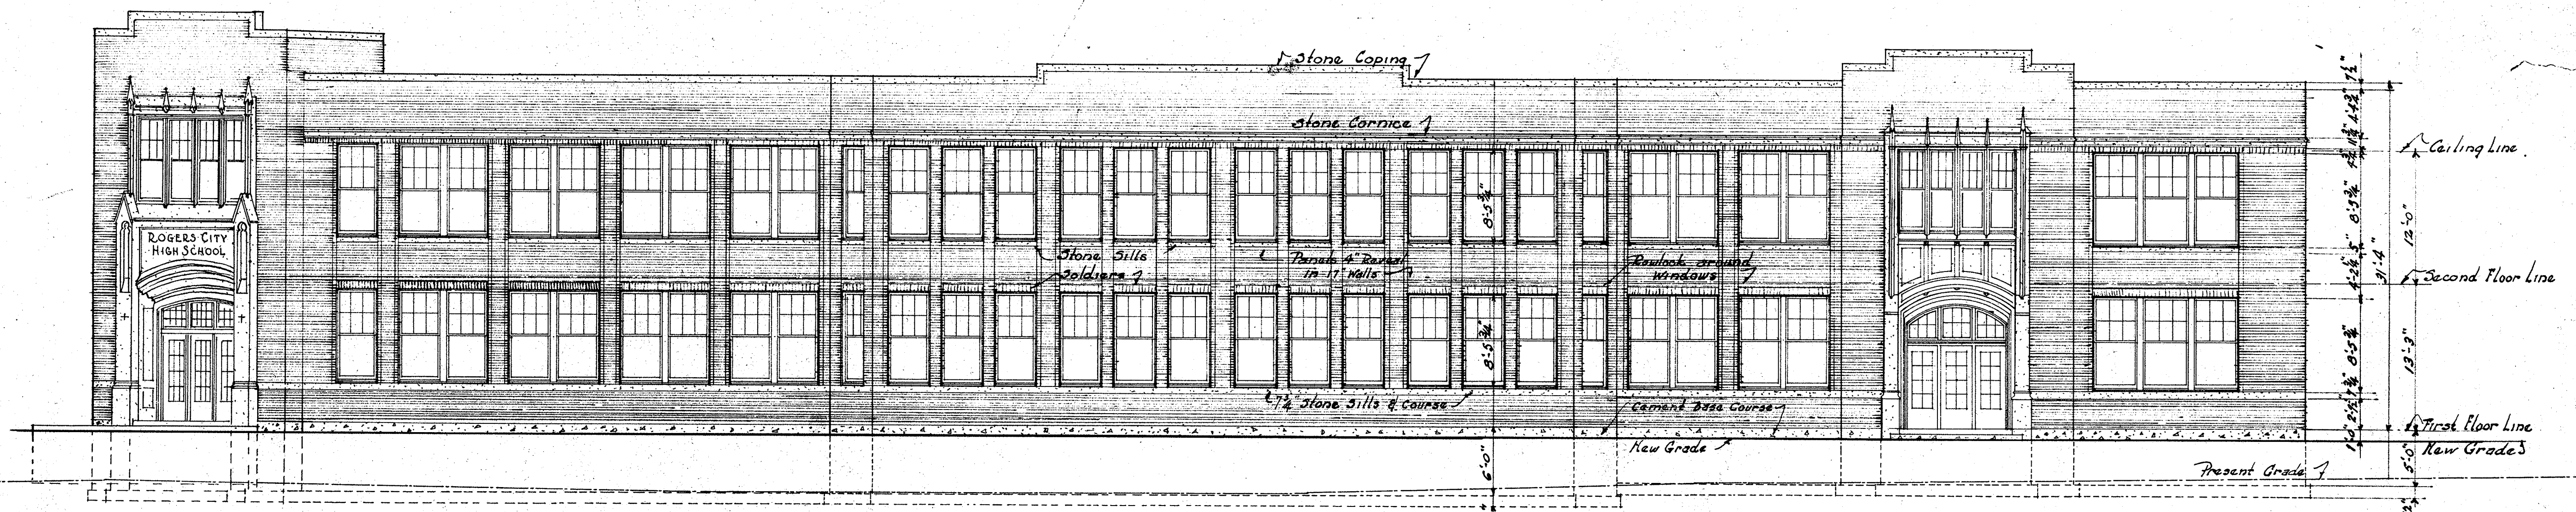 Stone Coping
Stone Cornice
ROGERS CITY
HIGH SCHOOL
Stone Sills
Soldiers
Panels 4" Reveal
in 17" Walls
Rowlock around
Windows
8'-5¾"
8'-5¾"
7¾" Stone Sills & Course
Cement Base Course
New Grade
6'-0"
Ceiling Line
Second Floor Line
First Floor Line
New Grade
Present Grade
8'-5¾"
8'-5¾"
12'-0"
31'-4"
13'-3"
5'-0"
1'-0"